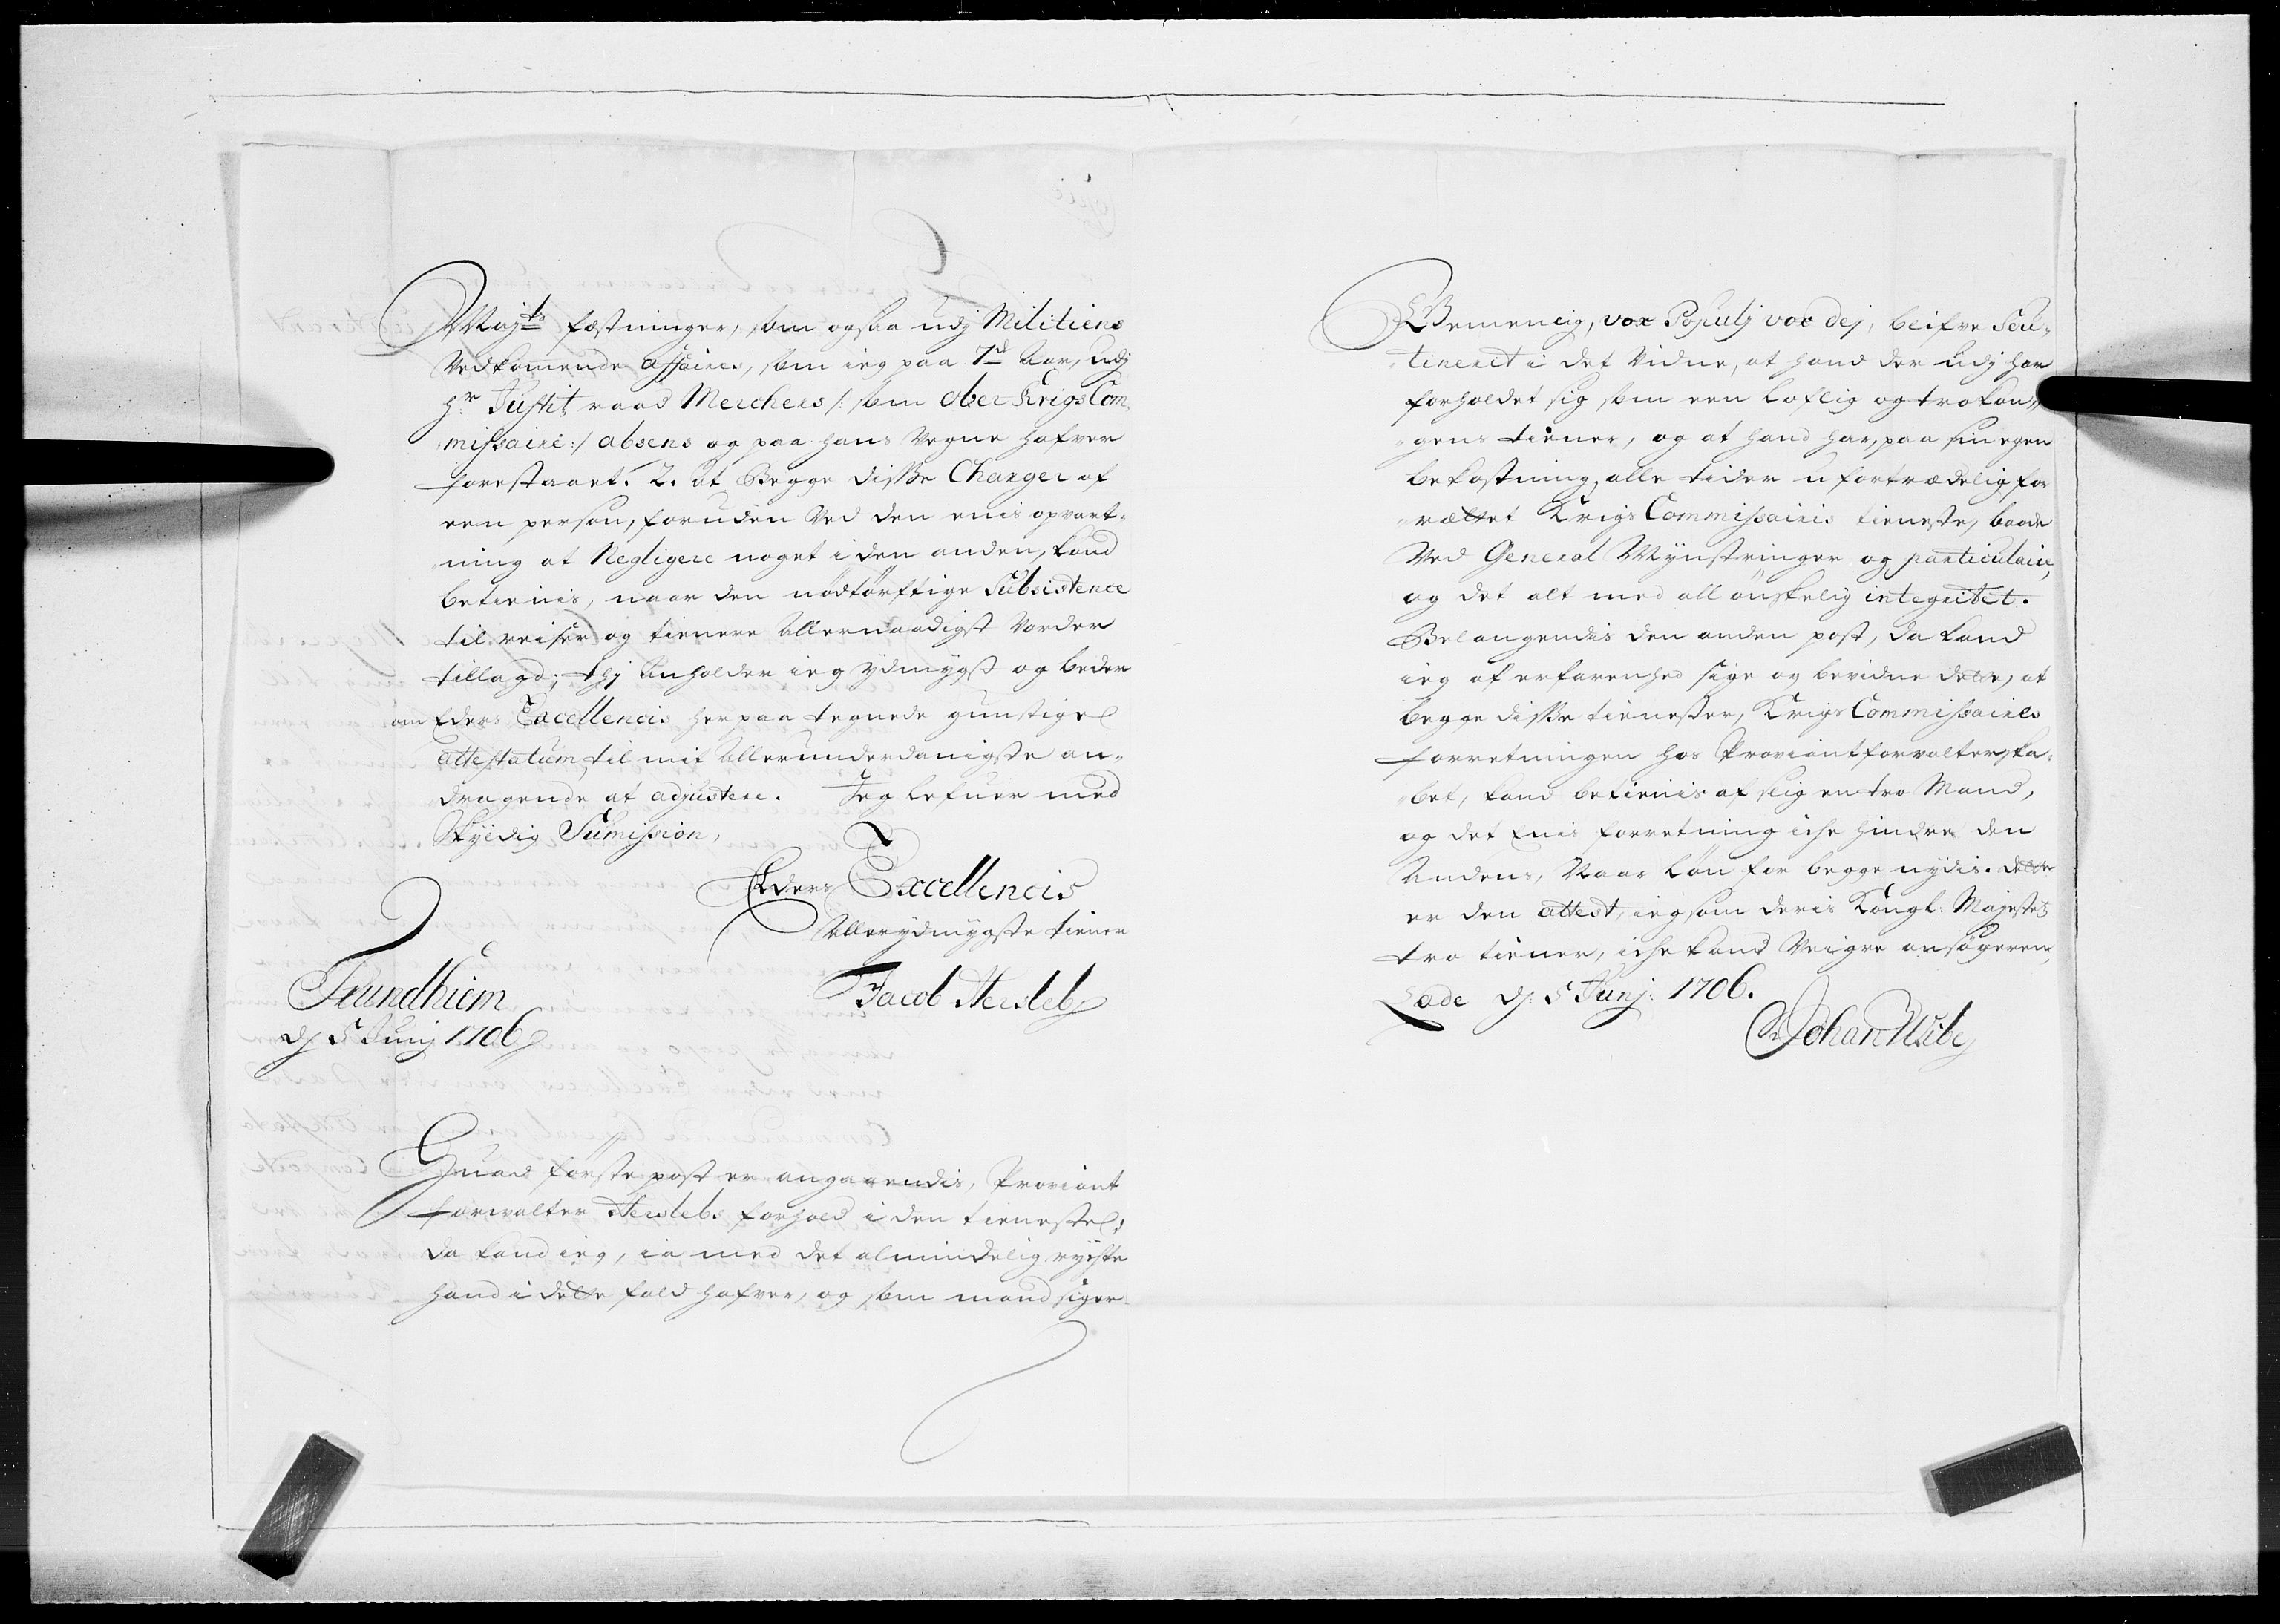 Majts festninger, som ogsaa udj Militiens
Vedkomende affairer, som ieg paa 7de Aar, udj
Hr Justitz raad Merchers /: som Ober Krigs Com,
missaire :/ absens og paa hans Vegne hafver
forestaaet. 2. At Begge disse Charger af
een person, foruden Ved den enis opvart-
ning at Negligere noget i den anden, kand
betienis, naar den nødtørftige Subsistence
til reiser og tienere Allernaadigst Vorder
tillagd; thj Anholder ieg ydmygst og beder
om Eders Excellencis herpaa tegnede gunstige
attestatum, til mit Allerunderdanigste an-
dragende at adjustere. Jeg lefuer med
Skyldig Sumission,
Eders Excellencis
Allerydmygste tiener
Trundhiem
Jacob Hersleb
dj 5 Junj 1706
Huad første post er angaaendis, Proviant
forvalter Herslebs forhold i den tieneste;
da kand ieg, ia med det almindelig rygte
hand i dette fald hafver, og som mand siger
Gemenlig, vox Populj vox dej, beifve Sou-
tineret i det Vidne, at hand der udj har
forholdet sig som een loflig og tro kon-
gens tiener, og at hand har, paa sin egen
bekostning, alle tider ufortrædelig for
rættet Krigs Commissairis tieneste, baade
Ved General Mynstringer og particulaire,
og det alt med all ønskelig integritet.
Belangendis den anden post, da kand
ieg af erfarenhed sige og bevidne dette, at
begge disse tienester, Krigs Commissaires
forretningen hos Proviantforvalterska-
bet, kand betienis af slig en tro Mand,
og det Enis forretning iche hindre den
Andens, Naar løn for begge nydis. dette
er den attest, ieg som deris Kongl: Majestets
tro tiener, iche kand Veigre ansøgeren,
Lade dj: 5 Junj: 1706.
Johan Wibe